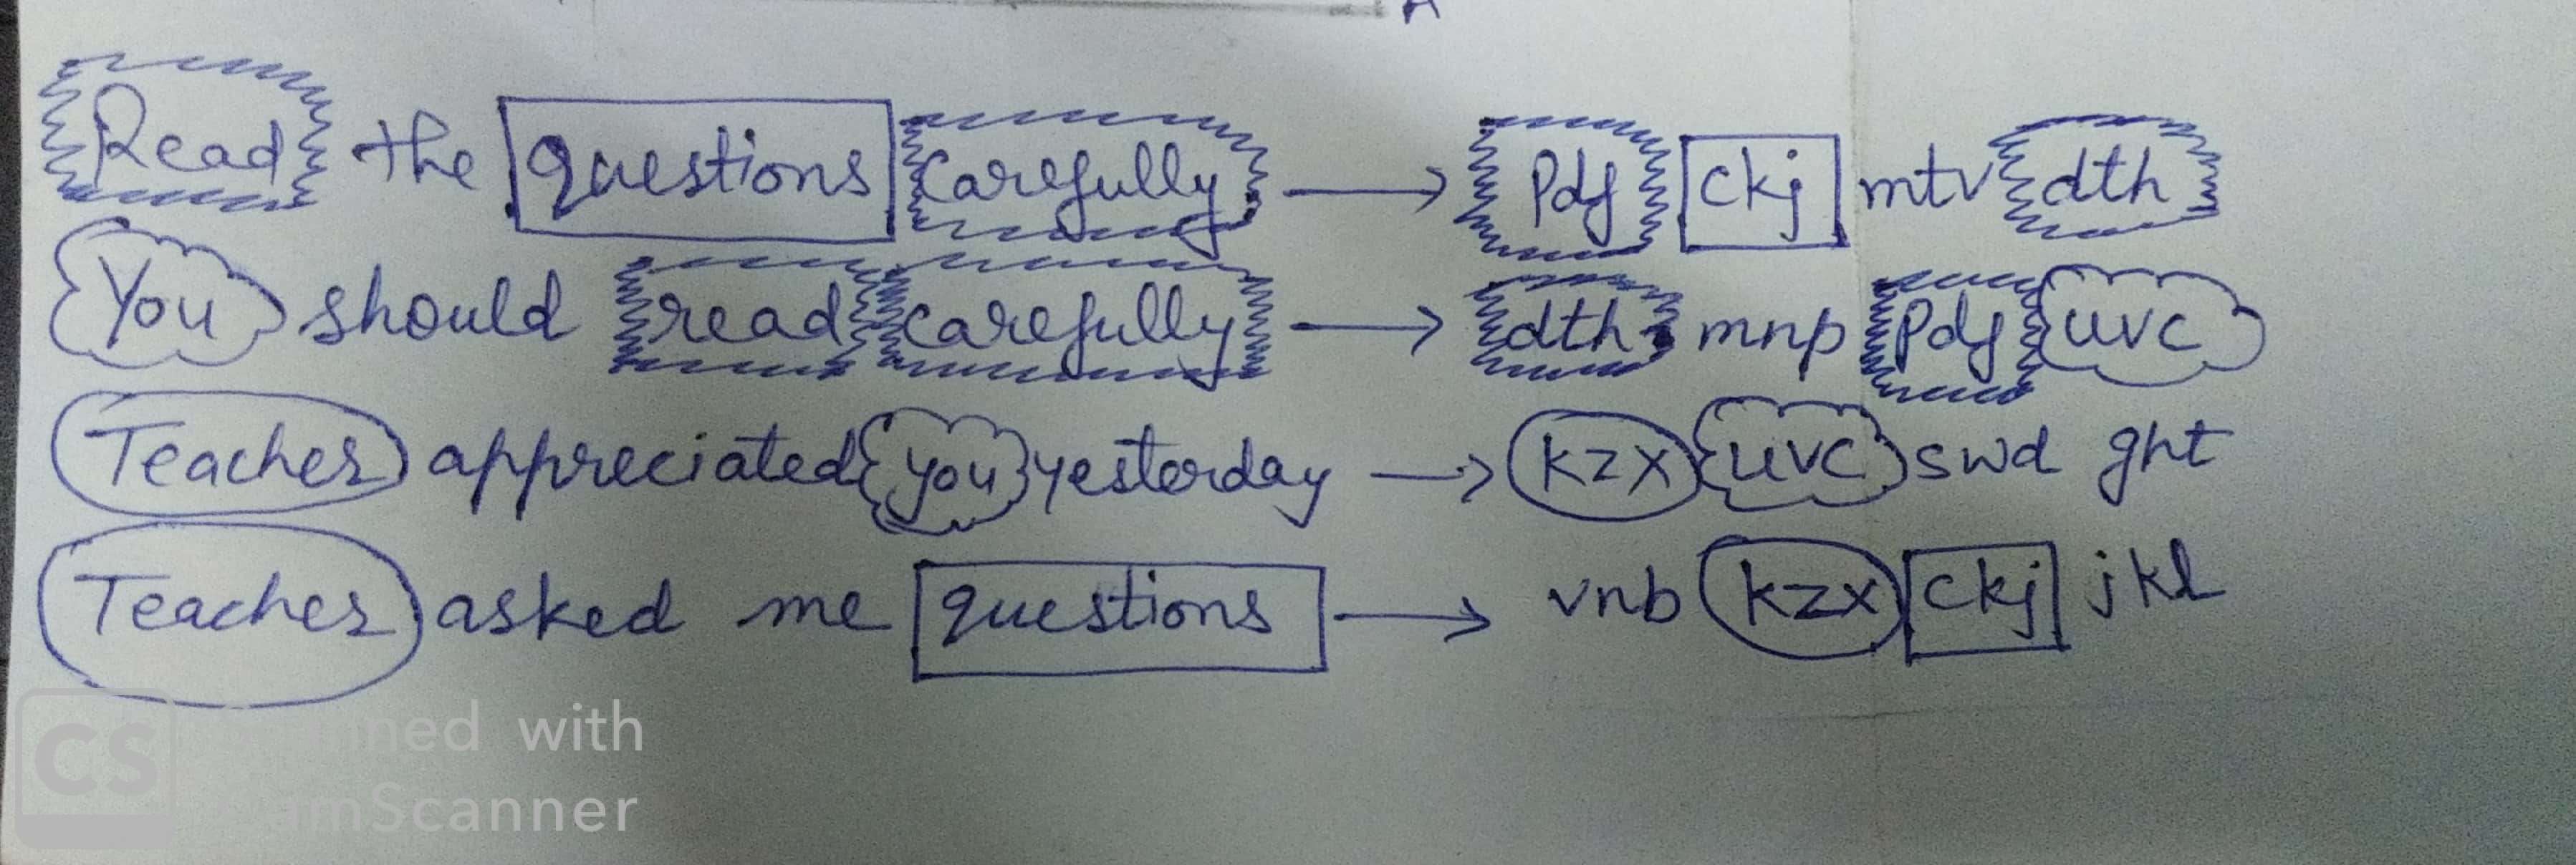 Read the questions carefully → Pdf ckj mtv dth
You should read carefully → dth mnp Pdf uvc
Teacher appreciated you yesterday → kzx uvc swd ght
Teacher asked me questions → vnb kzx ckj jkl
CS
with
Scanner